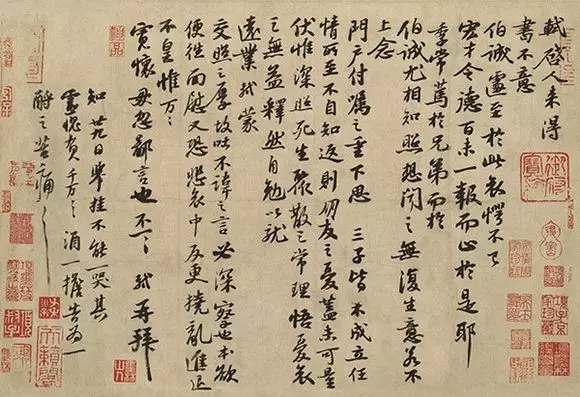 軾啓人来得
書不意
伯誠遽至於此哀愕不已
宏才令德百未一報而止於是耶
季常篤於兄弟而於
伯誠尤相知照想聞之無復生意若不
上念
門户付囑之重下思三子皆未成立任
情所至不自知返則朋友之憂蓋未可量
伏惟深照死生聚散之常理悟憂哀
之無益釋然自勉以就
遠業軾蒙
交照之厚故吐不諱之言必深察也本欲
便往面慰又恐悲哀中反更撓亂進退
不皇惟万〻
寬懷毋忽鄙言也不一〻軾再拜
知廿九日舉挂不能一哭其
靈愧負千万〻酒一擔告為一
酹之苦痛〻